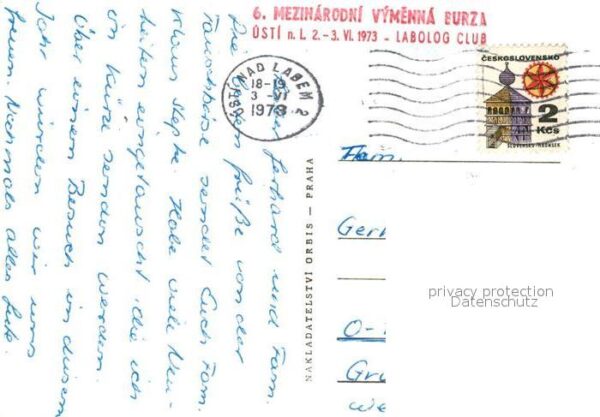 6. MEZINÁRODNÍ VÝMĚNNÁ BURZA
ÚSTÍ n. L. 2.-3. VI. 1973 - LABOLOG CLUB
ÚSTÍ NAD LABEM 2
18-19
3 VI
1973
ČESKOSLOVENSKO
2
Kčs
SLOVENSKO
Gerhard und Fam.
Grüße von der
Tauschbörse sendet Euch Fam.
Klaus Habe viele Neu-
heiten eingetauscht, die ich
in Kürze senden werde.
Über einen Besuch in diesem
Jahr würden wir uns
freuen. Nochmals alles Gute.
NAKLADATELSTVÍ ORBIS – PRAHA
Fam.
Ger
O-
Gr
we
privacy protection
Datenschutz